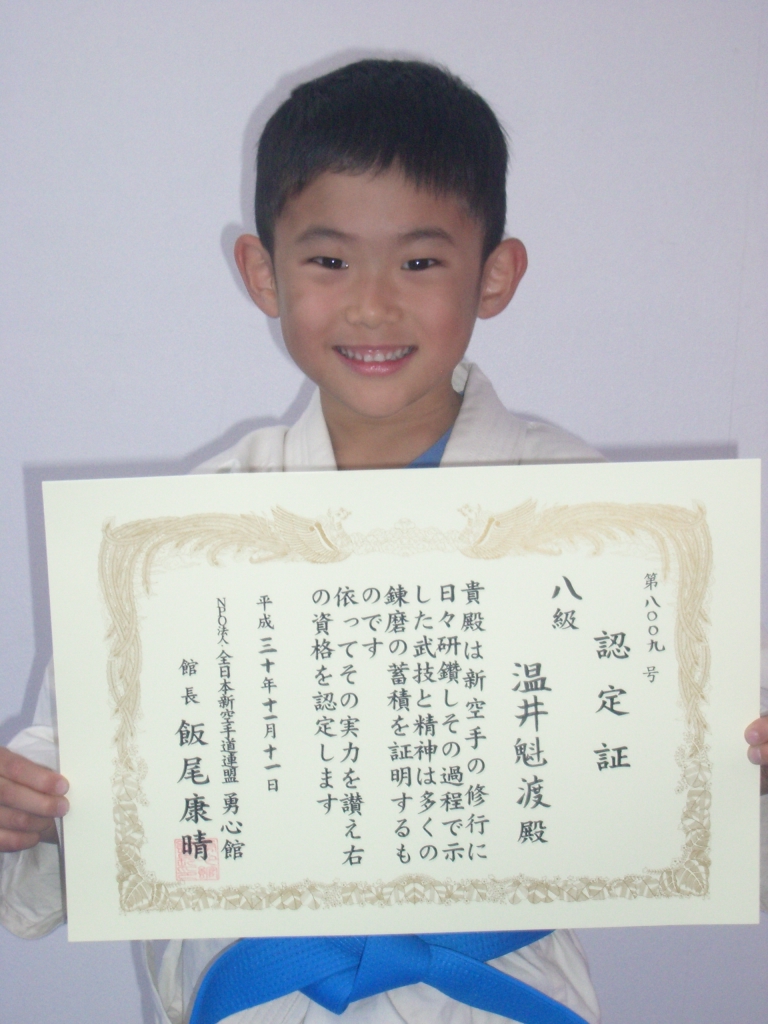 第八〇〇九号
認定証
八級
温井魁渡殿
貴殿は新空手の修行に
日々研鑽しその過程で示
した武技と精神は多くの
錬磨の蓄積を証明するも
のです
依ってその実力を讃え右
の資格を認定します
平成三十年十一月十一日
NPO法人 全日本新空手道連盟 勇心館
館長 飯尾康晴